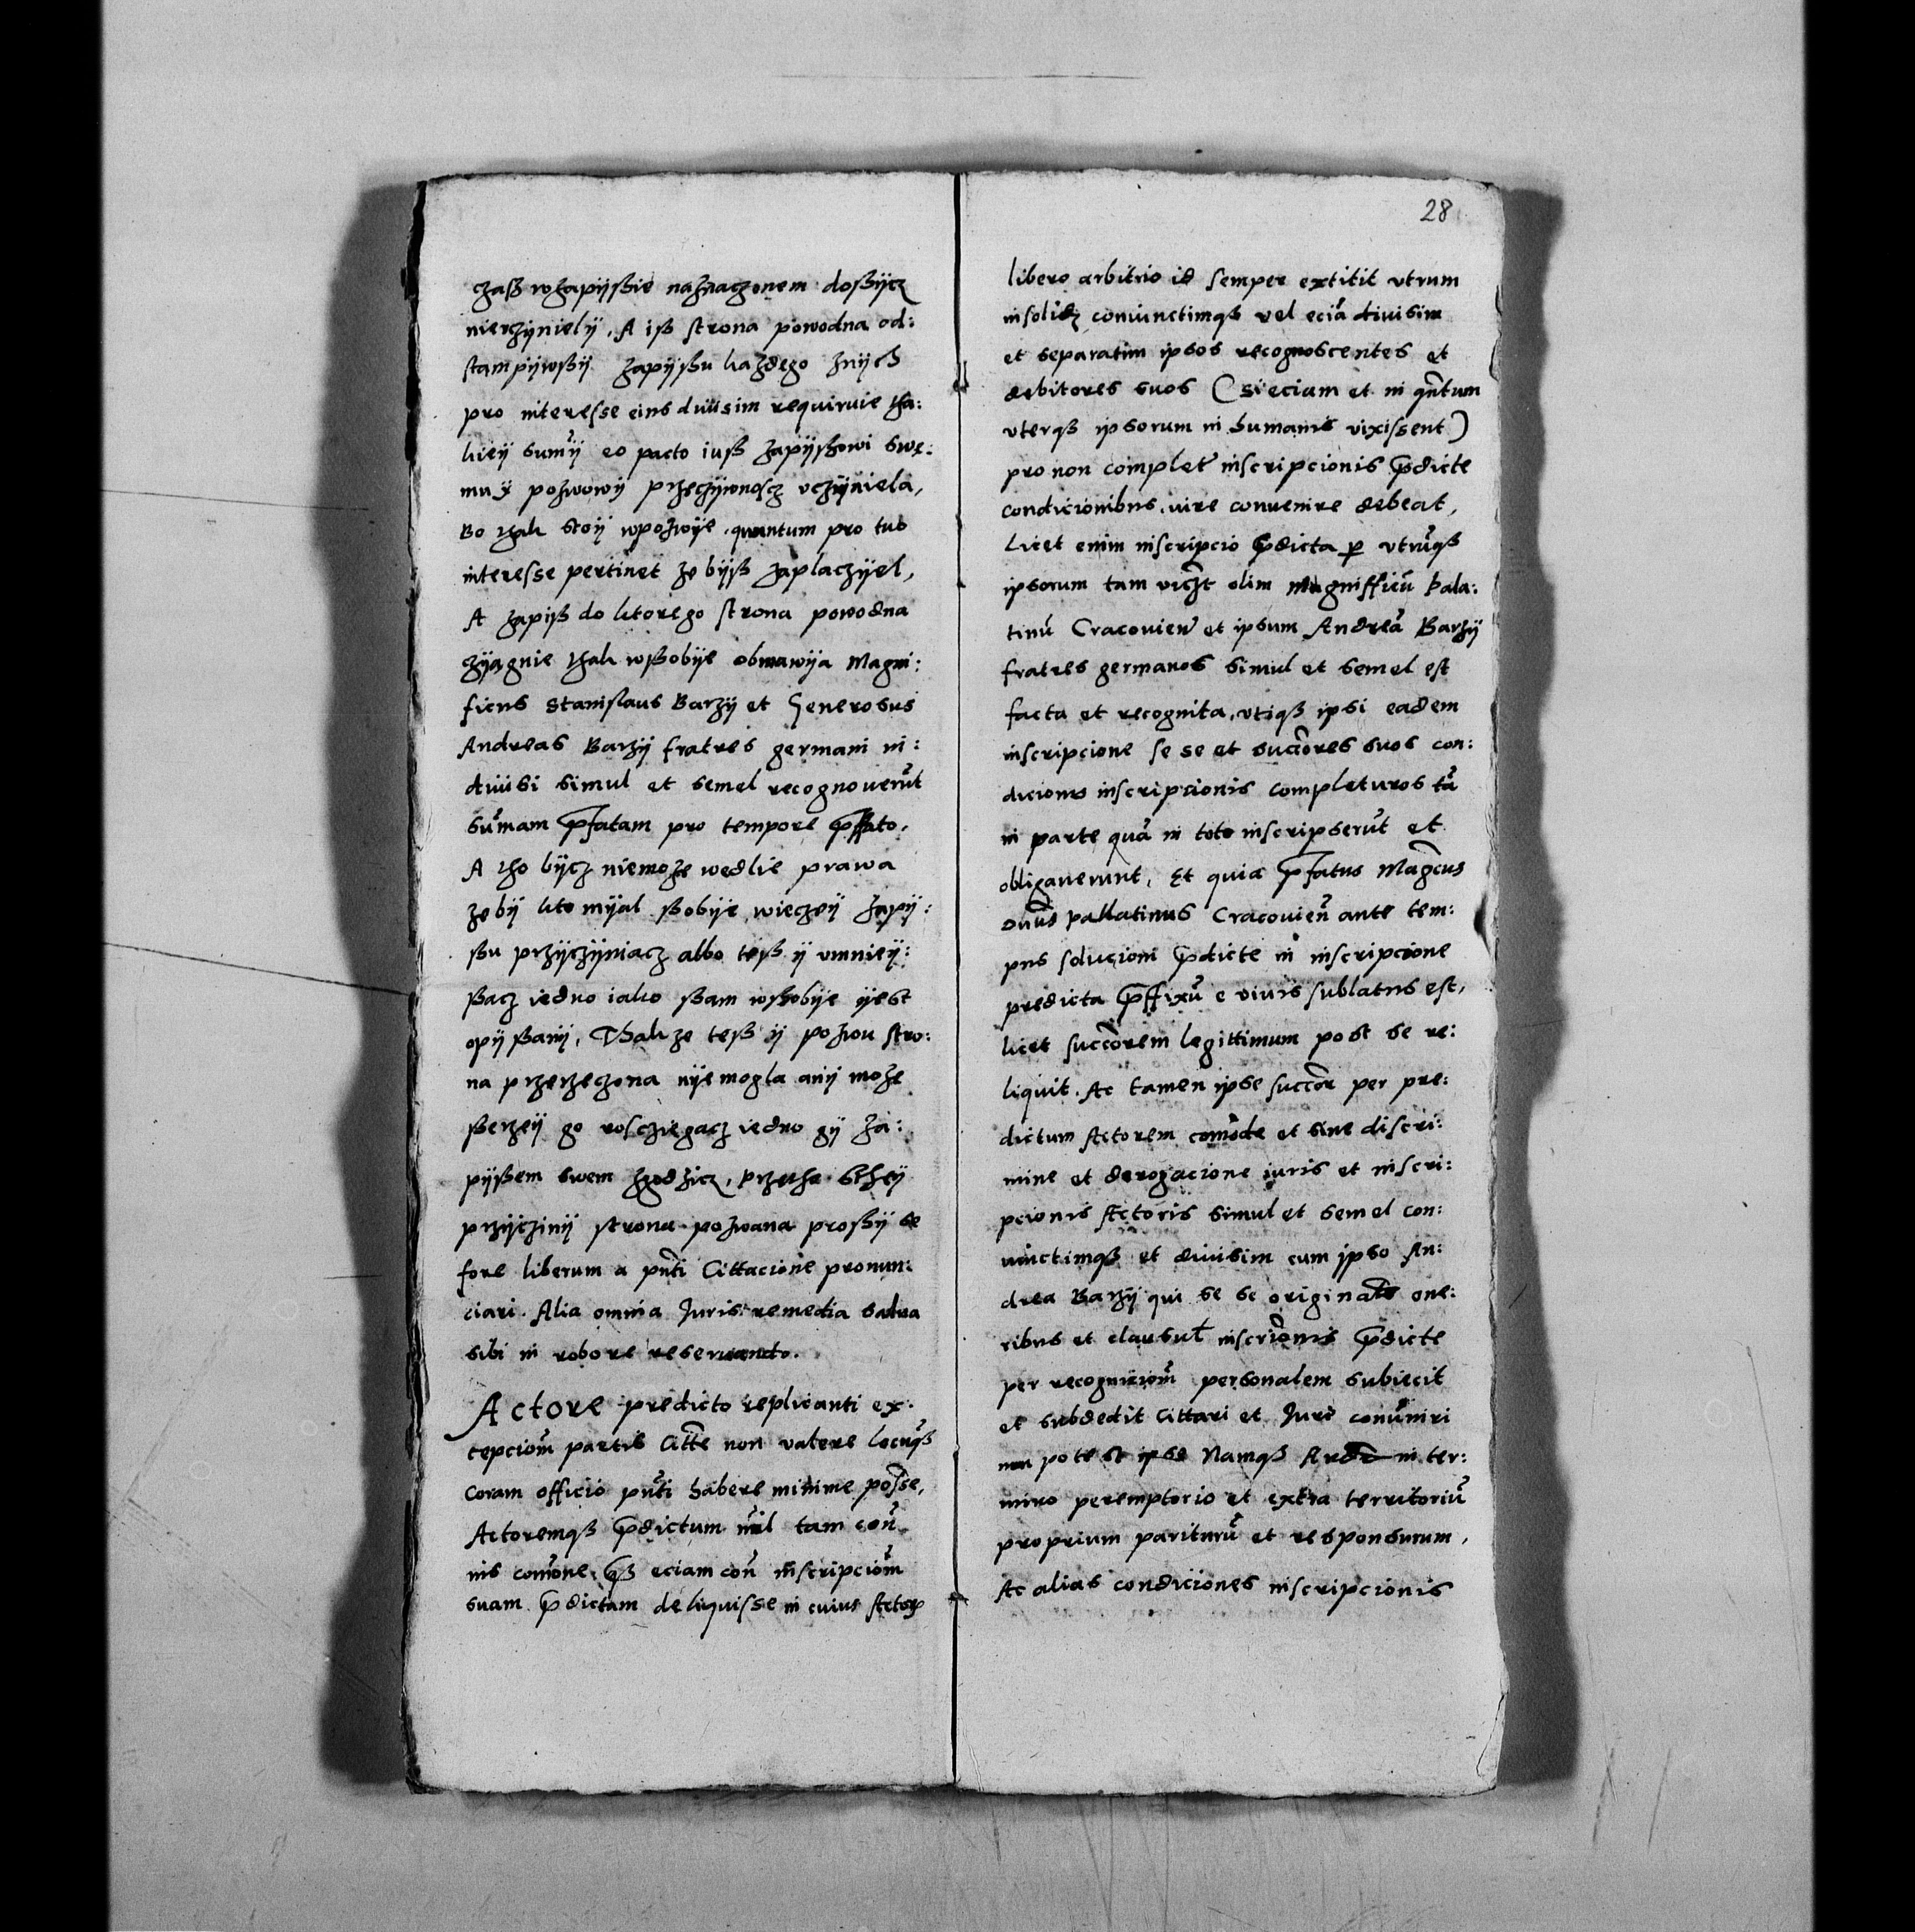 czasz wzapijszie naznaczonem doszijcz
nierzijnielij. A isz strona powodna od:
stampijwszij zapijszu kazdego znijch
pro interesse eius diuisim requiruie tha:
kieij sum̃ij eo pacto iusz zapijszowi swe:
mu ij pozwowij przeczijwnoscz vczijniela,
Bo thak stoij wpozwije quantum pro tuo
interesse pertinet ze bijsz zaplaczijel,
A zapisz do ktorego strona powodna
czijagnie thak wszobije obmawija Magni:
ficus Stanislaus Barzij et Generosus
Andreas Barzij fratres germani in:
diuisi simul et semel recognouerũt
sum̃am p̃fatam pro tempore p̃ffato.
A tho bijcz niemoze wedlie prawa
zebij kto mijal szobije wieczeij zapij:
szu przijczijniacz albo tesz ij vmnieij:
szacz iedno iako szam wszobije ijest
opijszanij, Thakze tesz ij pozwu stro:
na przerzeczona nije mogla anij moze
szerzeij go rosczieg​acz iedno zij za:
pijszem swem zgodzicz, Przetho stheij
przijczinij strona pozwana proszij se
fore liberum a pñti Cittacione pronun:
ciari. Alia omnia Juris remedia salua
sibi in robore reseruando.
Actore predicto replicanti ex:
cepciom̃ partis Citt̃e non valere locumq̃
coram officio pñti habere minime posse,
Actoremq̃ p̃dictum nil tam con̄
nis com̃one, q̃ eciam con̄ inscripciom̃
suam p̃dictam deliquisse in cuius Actoris
28
libero arbitrio id semper extitit vtrum
insolidũ coniunctimq̃ vel eciã diuisim
et separatim ipsos recognoscentes et
debitores suos (si eciam et in q̃ntum
vterq̃ ipsorum in humanis vixissent)
pro non complet̃ inscripcionis p̃dicte
condicionibus, iure conuenire debeat,
Licet enim inscripcio p̃dicta p̱ vtrũq̃
ipsorum tam viczt olim Magnifficũ Pala:
tinũ Cracovieñ et ipsum Andreã Barzij
fratres germanos simul et semel est
facta et recognita, vtiq̃ ipsi eadem
inscripcione se se et succ̃ores suos con:
diciones inscripcionis completuros tã
in parte quã in toto inscripserũt et
obligauerunt, Et quia p̃fatus Mag̃cus
oli͂us Pallatinus Cracouieñ ante tem:
pus solucioni p̃dicte in inscripcione
predicta p̃ffixũ e viuis sublatus est,
licet succ̃orem legittimum post se re:
liquit. Ac tamen ipse succ̃or per pre:
dictum Actorem com̃ode et sine discri:
mine et derogacione iuris et inscri:
pcionis Actoris simul et semel con:
iunctimq̃ et diuisim cum ipso An:
drea Barzij qui se se originał̃e one:
ribus et clausuł inscr̃ionis p̃dicte
per recognciom̃ personalem subiecit
et subdedit Cittari et Jure conũeniri
non potest ipse Namq̃ in ter:
mino peremptorio et extra territoriũ
proprium pariturũ et responsurum,
Ac alias condiciones inscripcionis